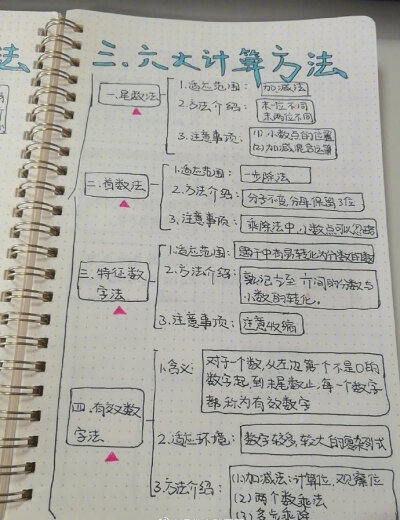 三.六大计算方法
一.尾数法
1.适应范围：加减法
2.方法介绍：末一位不同
末两位不同
3.注意事项：(1)小数点的位置
(2)加减混合运算
二.首数法
1.适应范围：一步除法
2.方法介绍：分子不变,分母保留3位
3.注意事项：乘除法中,小数点可以忽略
三.特征数
字法
1.适应范围：
2.方法介绍：熟记
分数与
小数的转化。
3.注意事项：注意收缩
四.有效数
字法
1.含义：对于一个数,从左边第一个不是0的
数字起,到末尾数止,每一个数字
都称为有效数字
2.适应环境：数字较多,较大的复杂列式
3.方法介绍：(1)加减法:计算位,观察位
(2)两个数乘法
(3)多步乘除